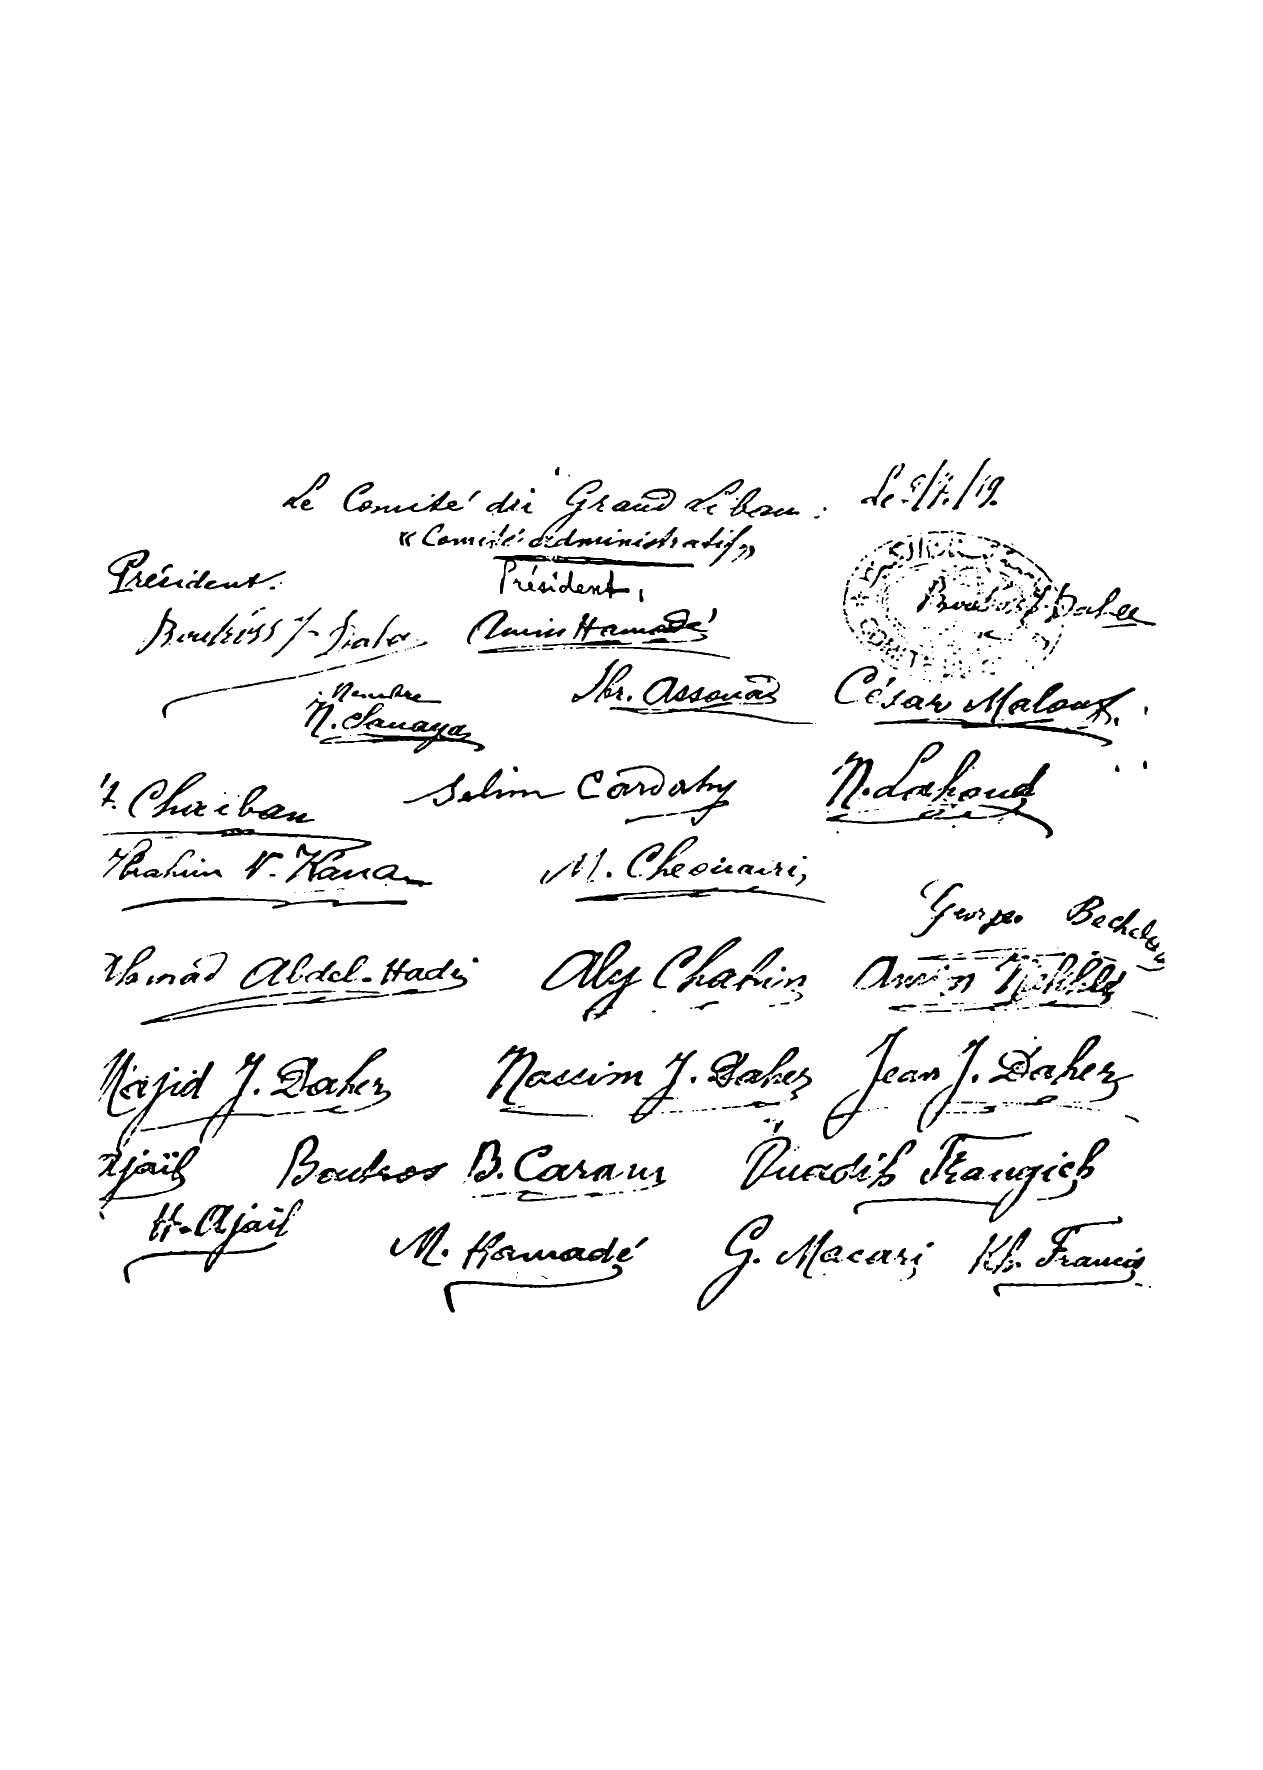 Le Comité du Grand Liban : Le 9/7/19.
« Comité administratif »
Président. Président,
Amin Hamadé Daher
Membre Ibr. Assouad César Malouf.
N. Sanaya
Chaiban Selim Cardahy N. Lahoud
Ibrahim N. Kanan M. Cheouairi,
George
Ahmad Abdel-Hadi Aly Chahin Amin Nakhlé
Majid J. Daher Nassim J. Daher Jean J. Daher
Ajaïl Boutros B. Caram Ouadih Frangieh
H. Ajaïl
M. Hamadé G. Macari Kh. Francis
COMITÉ